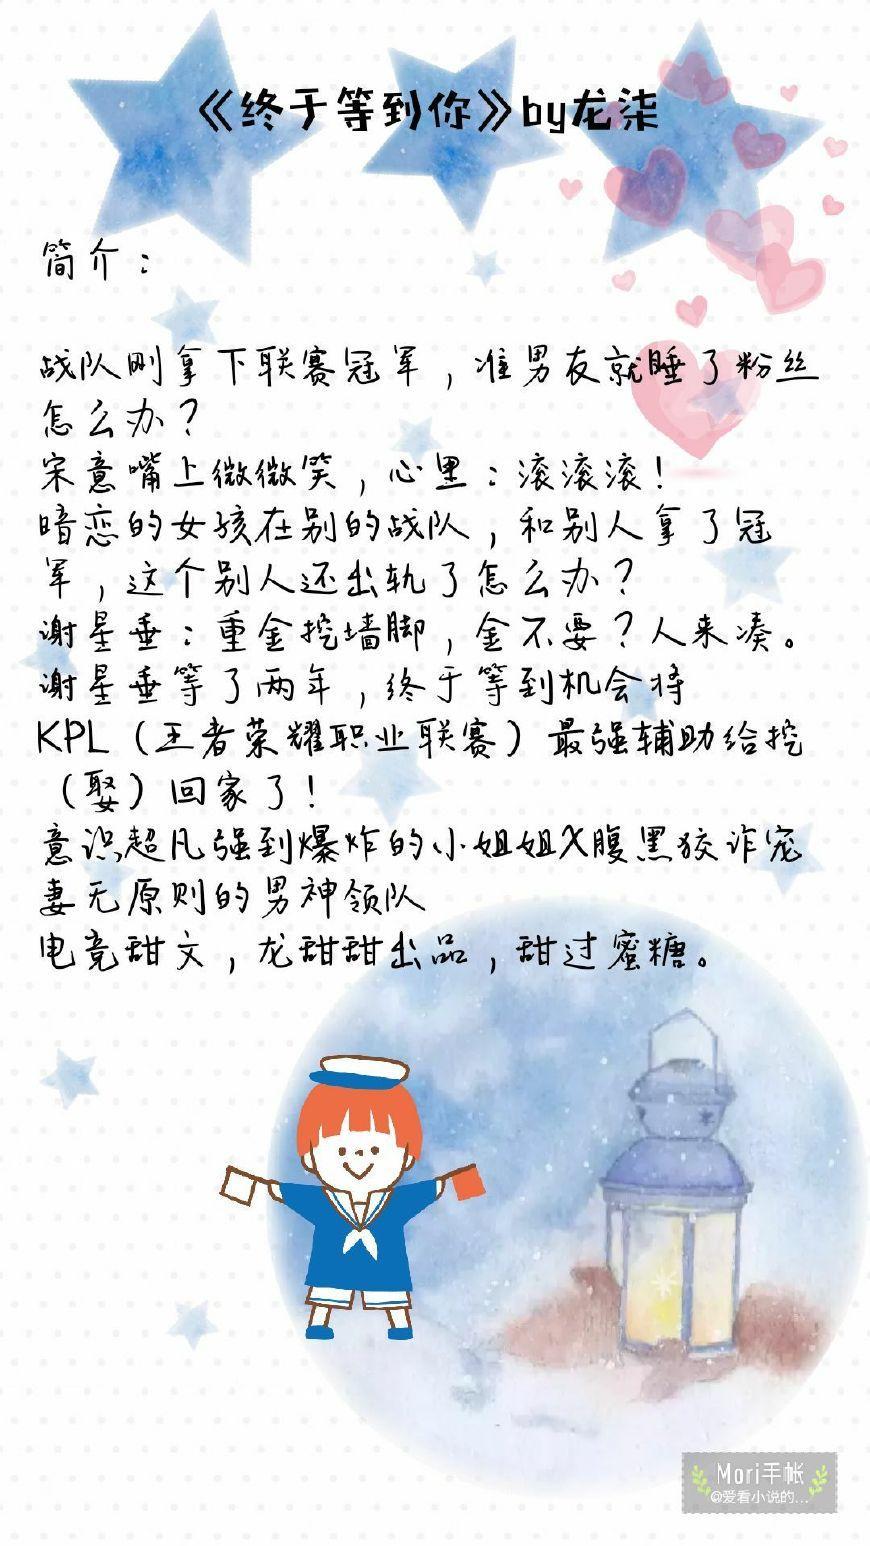 《终于等到你》by龙柒
简介：
战队刚拿下联赛冠军，准男友就睡了粉丝
怎么办？
宋意嘴上微微笑，心里：滚滚滚！
暗恋的女孩在别的战队，和别人拿了冠
军，这个别人还出轨了怎么办？
谢星垂：重金挖墙脚，金不要？人来凑。
谢星垂等了两年，终于等到机会将
KPL（王者荣耀职业联赛）最强辅助给挖
（娶）回家了！
意识超凡强到爆炸的小姐姐X腹黑狡诈宠
妻无原则的男神领队
电竞甜文，龙甜甜出品，甜过蜜糖。
Mori手帐
@爱看小说的...